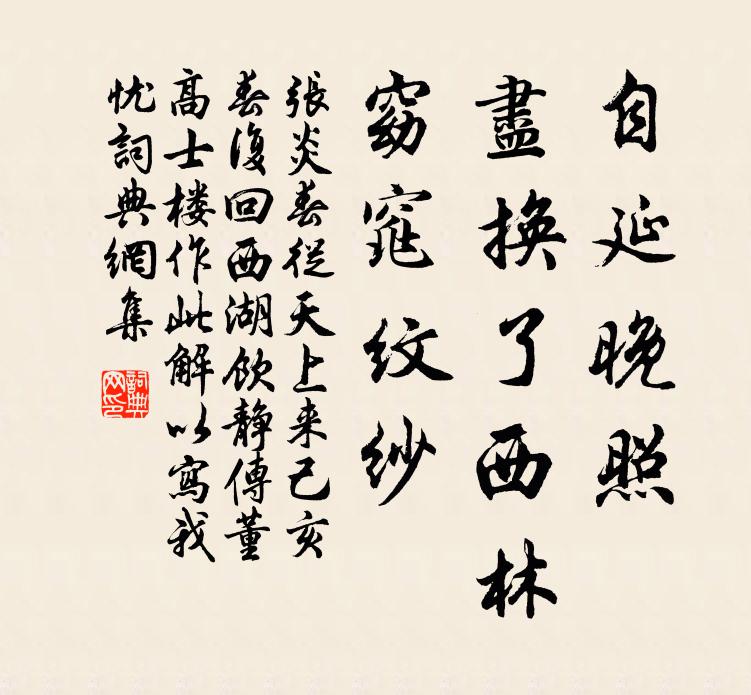 自延晚照
盡換了西林
窈窕紋紗
張炎春從天上来己亥
春復回西湖飲静傳董
高士楼作此解以寫我
忧詞典網集
詞典網印